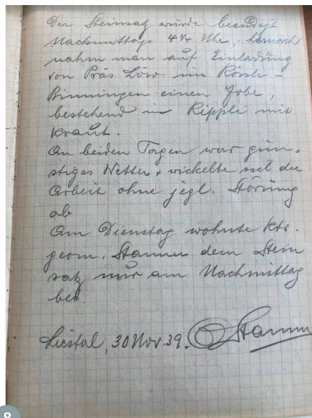 Der Steinsatz wurde beendigt
Nachmittags 4¼ Uhr, hernach
nahm man auf Einladung
von Präs Löw im Rössli-
Binningen einen Jobe,
bestehend in Rippli mit
Kraut.
An beiden Tagen war gün-
stiges Wetter & wickelte sich die
Arbeit ohne jegl. Störung
ab
Am Dienstag wohnte Kts.
geom. Stamm dem Stein
satz nur am Nachmittag
bei.
Liestal, 30 Nov 39. Stamm
8